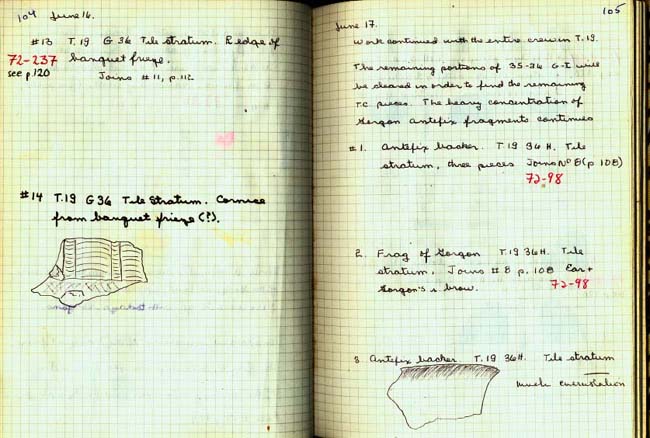 104 June 16.
#13 T.19 G 36 Tile stratum. R edge of
72-237 banquet frieze.
see p.120 Joins #11, p.112
#14 T.19 G36 Tile Stratum. Cornice
from banquet frieze (?).
105
June 17.
Work continued with the entire crew in T.19.
The remaining portions of 35-36 G-I will
be cleared in order to find the remaining
T.C. pieces. The heavy concentration of
Gorgon Antefix fragments continues
#1. Antefix backer T.19 36H. Tile
stratum, three pieces Joins Nº 8 (p 108)
72-98
2. Frag of Gorgon T.19 36H. Tile
stratum. Joins #8 p. 108 Ear +
Gorgon's brow. 72-98
3 Antefix backer T.19 36H. Tile stratum
much encrustation